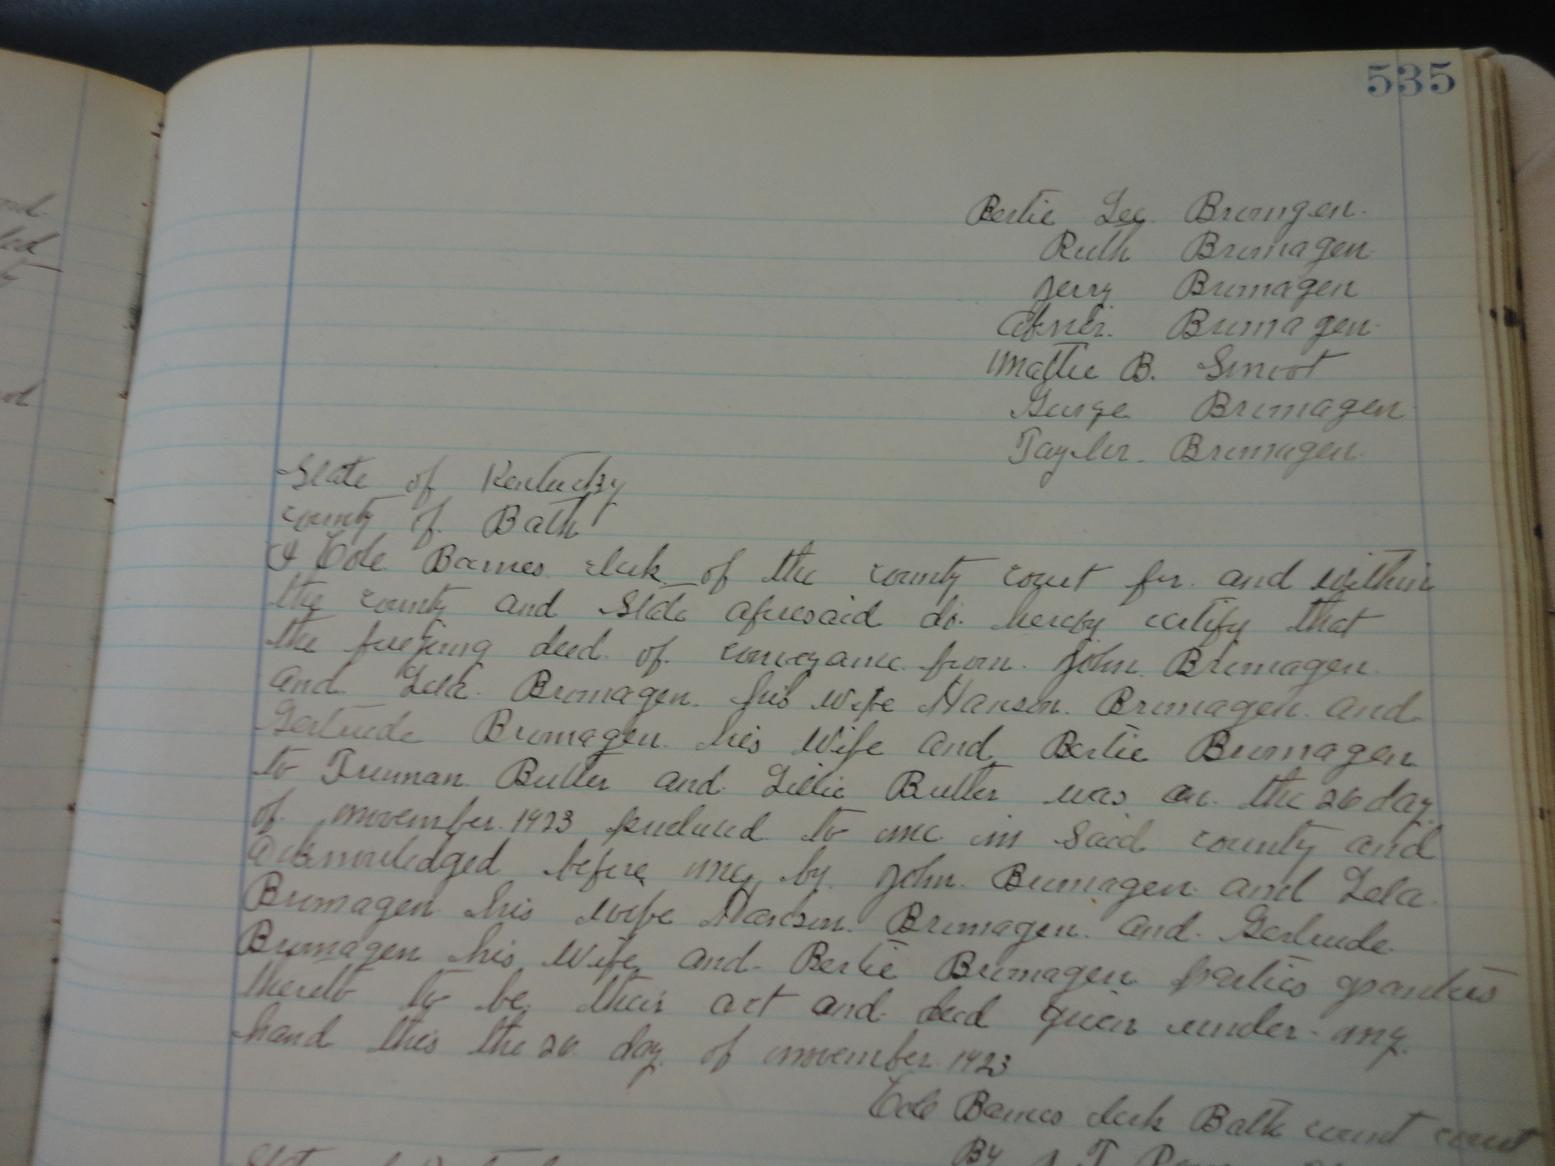 535
Bertie Lee Bromgen.
Ruth Brumagen
Jerry Brumagen
Abner. Brumagen.
Mattie B. Smoot
George Brumagen
Tayler. Brumagen.
State of Kentucky
county of. Bath
I Cole Barnes clerk of the county court for. and within
the county and State aforesaid do. hereby certify that
the foregoing deed. of. conveyance. from. John. Brumagen.
and Lela. Brumagen. his wife Hanson. Brumagen. and
Gertrude Brumagen. his Wife and Bertie Brumagen
to Truman Butler and. Lillie Butler was on. the 26 day
of. november. 1923 produced to me in said county and
acknowledged before me, by. John. Brumagen. and Lela.
Brumagen his wife Hanson. Brumagen. and. Gertrude.
Brumagen his Wife and. Bertie Brumagen parties grantors
thereto to be. their act and deed given under. my.
hand this the 26. day of november. 1923
Cole Barnes clerk Bath count court
By